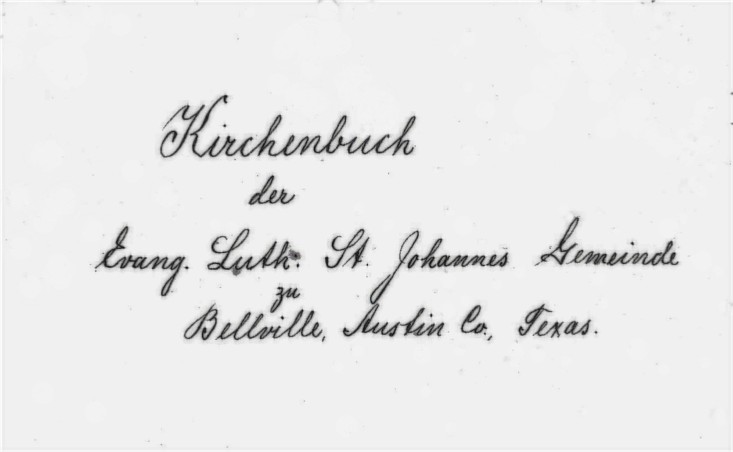 Kirchenbuch
der
Evang. Luth. St. Johannes Gemeinde
zu
Bellville, Austin Co., Texas.